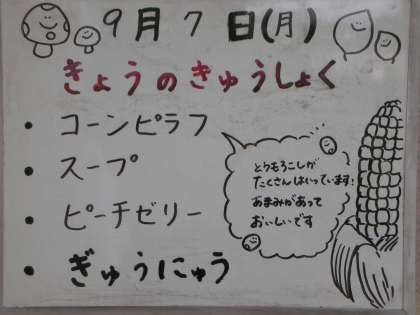 9月7日(月)
きょうのきゅうしょく
・コーンピラフ
・スープ
・ピーチゼリー
・ぎゅうにゅう
とうもろこしが
たくさんはいっています!
あまみがあって
おいしいです